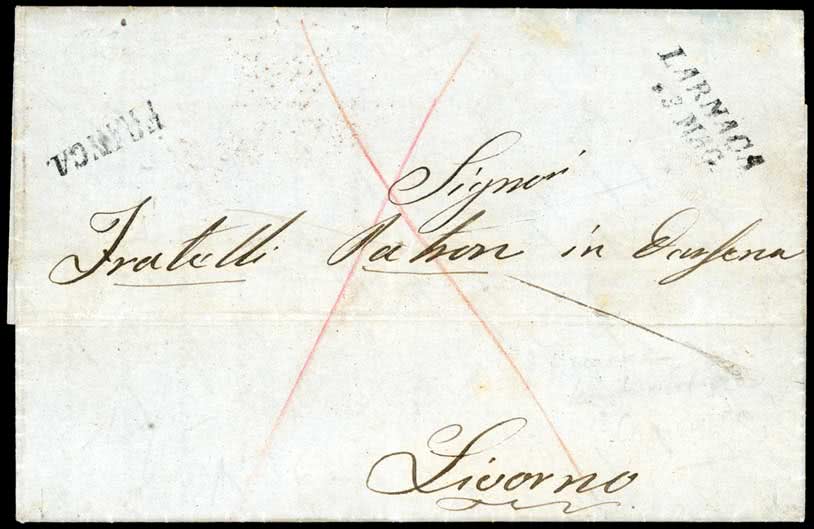 FRANCA
LARNACA
2 MAG.
Signori
Fratelli Patron in Darsena
Livorno